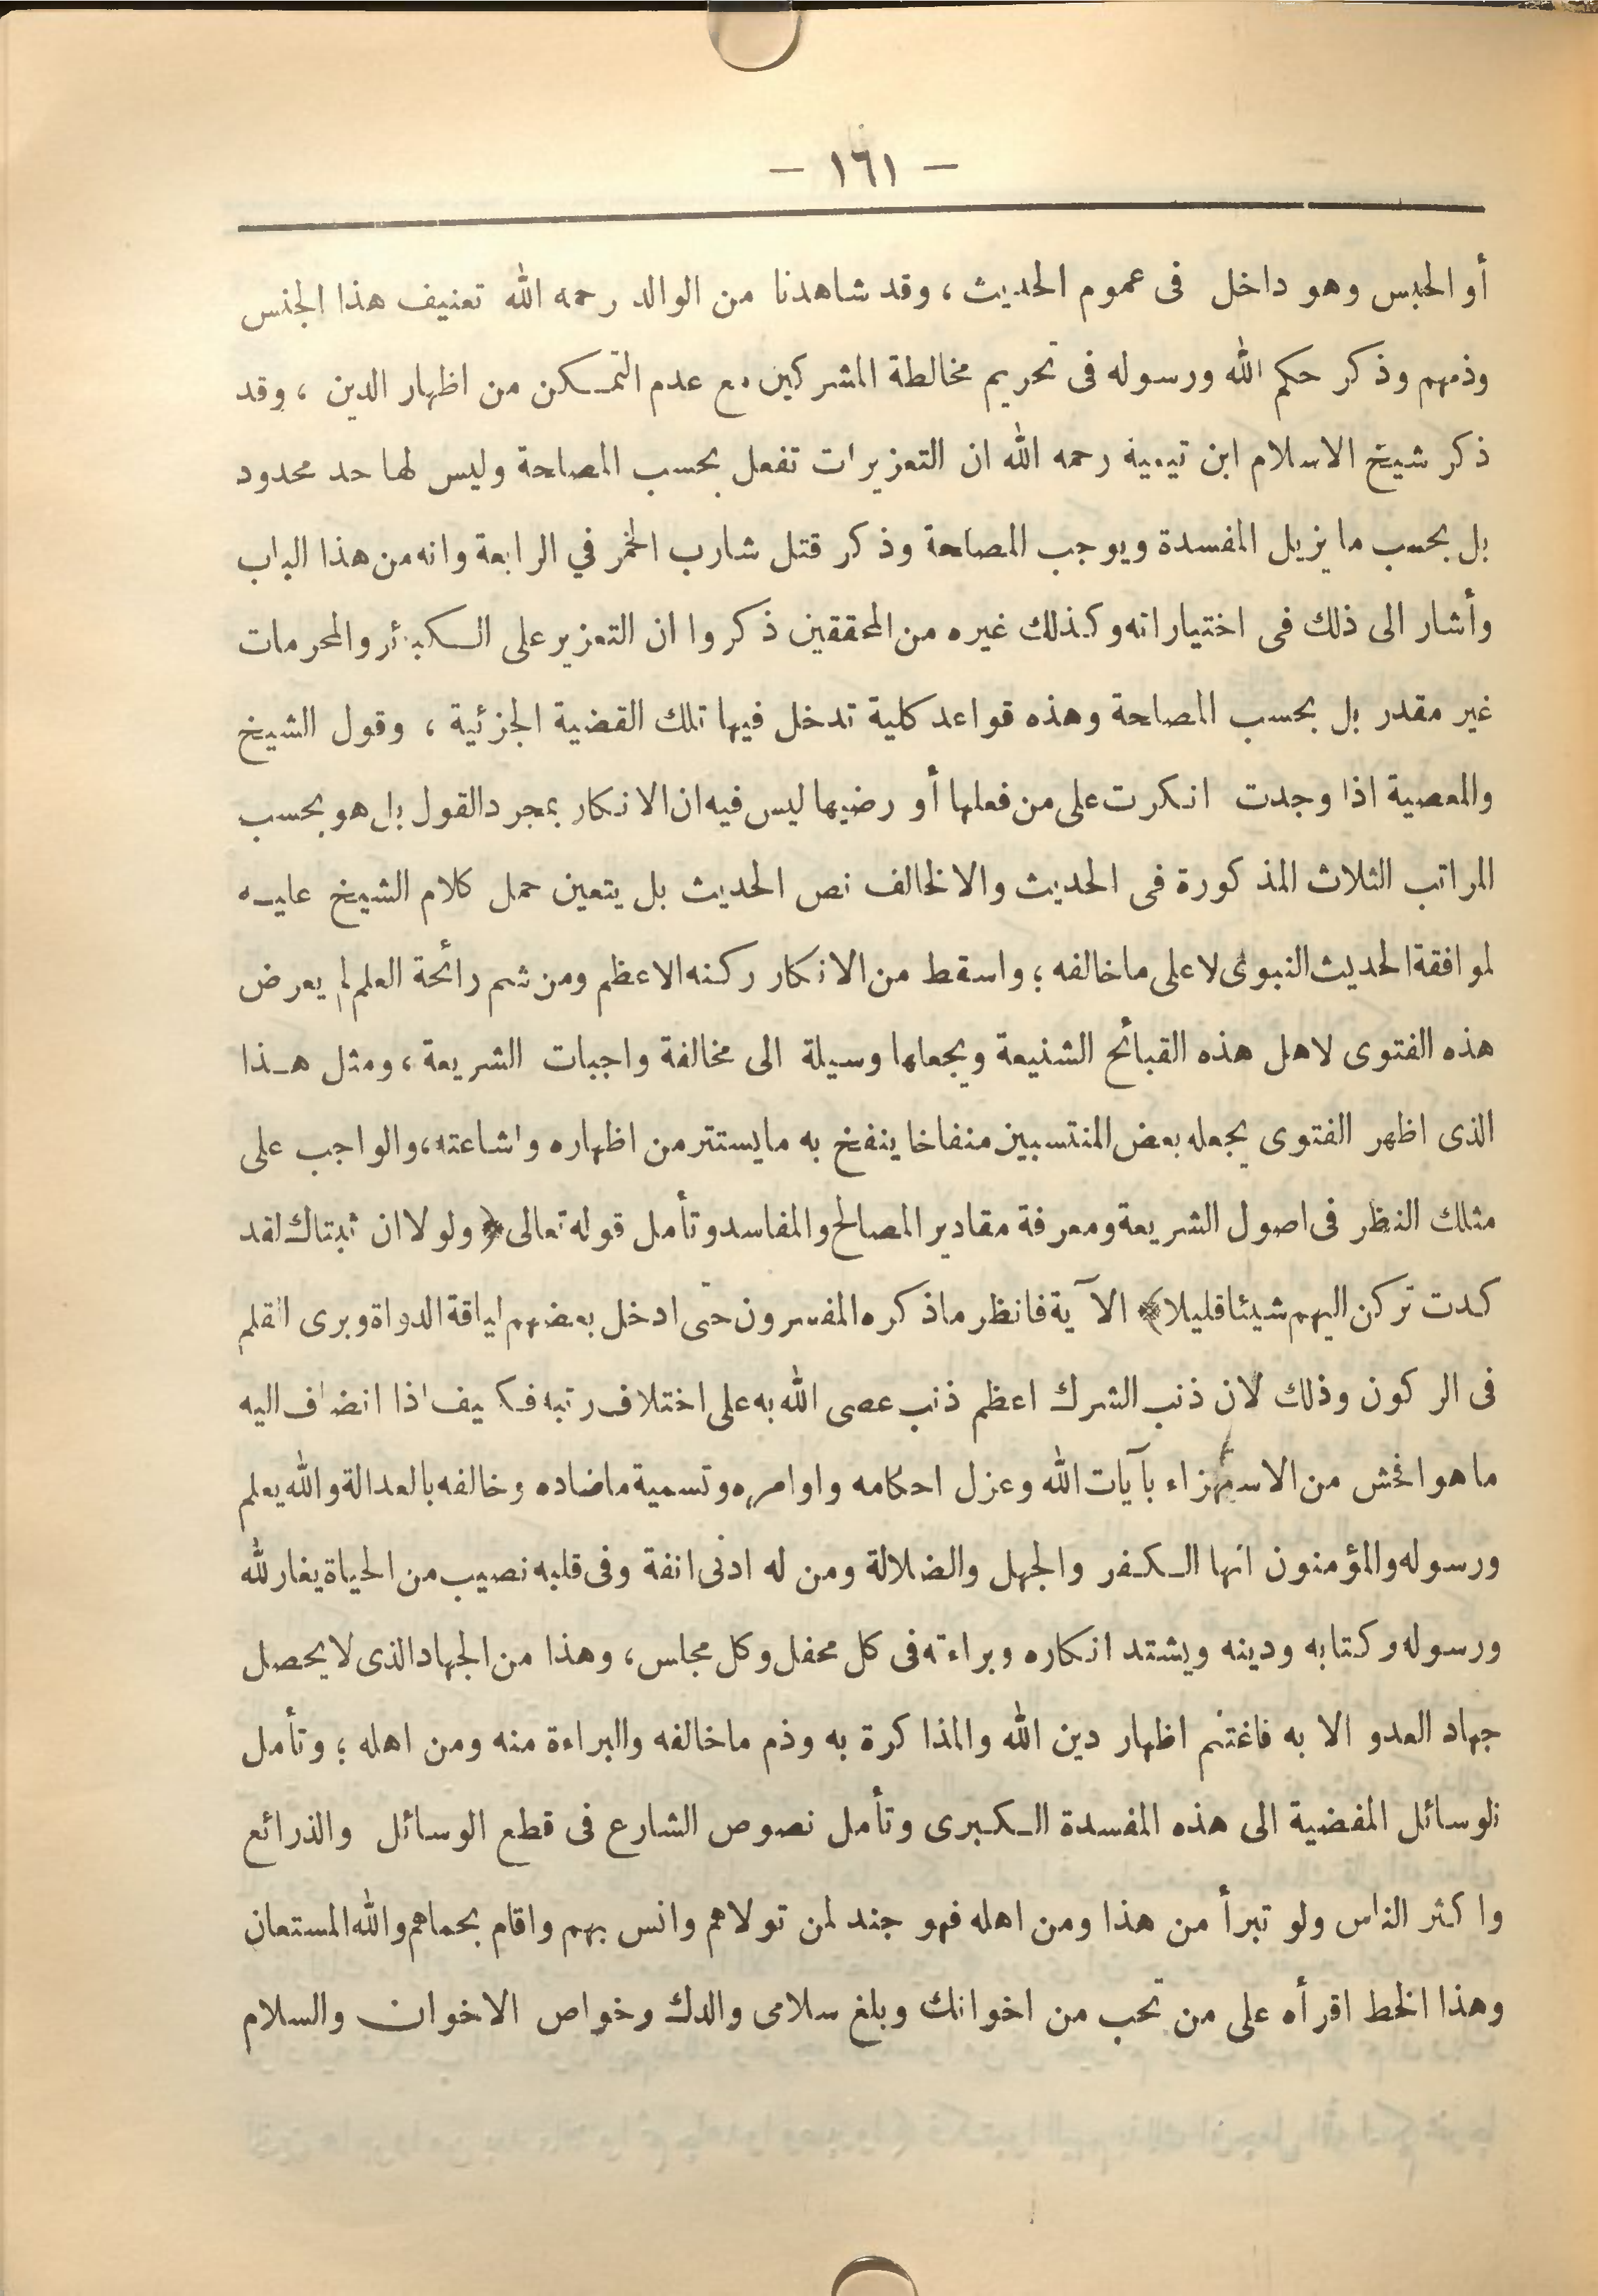 — ١٦١ —
أو الحبس وهو داخل فى عموم الحديث، وقد شاهدنا من الوالد رحمه الله تعنيف هذا الجنس
وذمهم وذكر حكم الله ورسوله فى تحريم مخالطة المشركين مع عدم التمكن من اظهار الدين، وقد
ذكر شيخ الاسلام ابن تيمية رحمه الله ان التعزيرات تفعل بحسب المصلحة وليس لها حد محدود
بل بحسب ما يزيل المفسدة ويوجب المصلحة وذكر قتل شارب الخمر في الرابعة وانه من هذا الباب
وأشار الى ذلك فى اختياراته وكذلك غيره من المحققين ذكروا ان التعزير على الكبائر والمحرمات
غير مقدر بل بحسب المصلحة وهذه قواعد كلية تدخل فيها تلك القضية الجزئية، وقول الشيخ
والمعصية اذا وجدت انكرت على من فعلها أو رضيها ليس فيه ان الانكار بمجرد القول بل هو بحسب
المراتب الثلاث المذكورة فى الحديث والا لخالف نص الحديث بل يتعين حمل كلام الشيخ عليه
لموافقة الحديث النبوى لا على ما خالفه؛ واسقط من الانكار ركنه الاعظم ومن شم رائحة العلم لم يعرض
هذه الفتوى لاهل هذه القبائح الشنيعة ويجعلها وسيلة الى مخالفة واجبات الشريعة، ومثل هذا
الذى اظهر الفتوى يجعله بعض المنتسبين منفاخا ينفخ به ما يستتر من اظهاره واشاعته، والواجب على
مثلك النظر فى اصول الشريعة ومعرفة مقادير المصالح والمفاسد وتأمل قوله تعالى ﴿ ولولا ان ثبتناك لقد
كدت تركن اليهم شيئا قليلا ﴾ الآية فانظر ماذكره المفسرون حتى ادخل بعضهم لياقة الدواة وبرى القلم
فى الركون وذلك لان ذنب الشرك اعظم ذنب عصى الله به على اختلاف رتبه فكيف اذا انضاف اليه
ما هو افحش من الاستهزاء بآيات الله وعزل احكامه واوامره وتسمية ماضاده وخالفه بالعدالة والله يعلم
ورسوله والمؤمنون انها الكفر والجهل والضلالة ومن له ادنى انفة وفى قلبه نصيب من الحياة يغار لله
ورسوله وكتابه ودينه ويشتد انكاره وبراءته فى كل محفل وكل مجلس، وهذا من الجهاد الذى لا يحصل
جهاد العدو الا به فاغتنم اظهار دين الله والمذاكرة به وذم ماخالفه والبراءة منه ومن اهله؛ وتأمل
الوسائل المفضية الى هذه المفسدة الكبرى وتأمل نصوص الشارع فى قطع الوسائل والذرائع
واكثر الناس ولو تبرأ من هذا ومن اهله فهو جند لمن تولاهم وانس بهم واقام بحماهم والله المستعان
وهذا الخط اقرأه على من تحب من اخوانك وبلغ سلامى والدك وخواص الاخوان والسلام